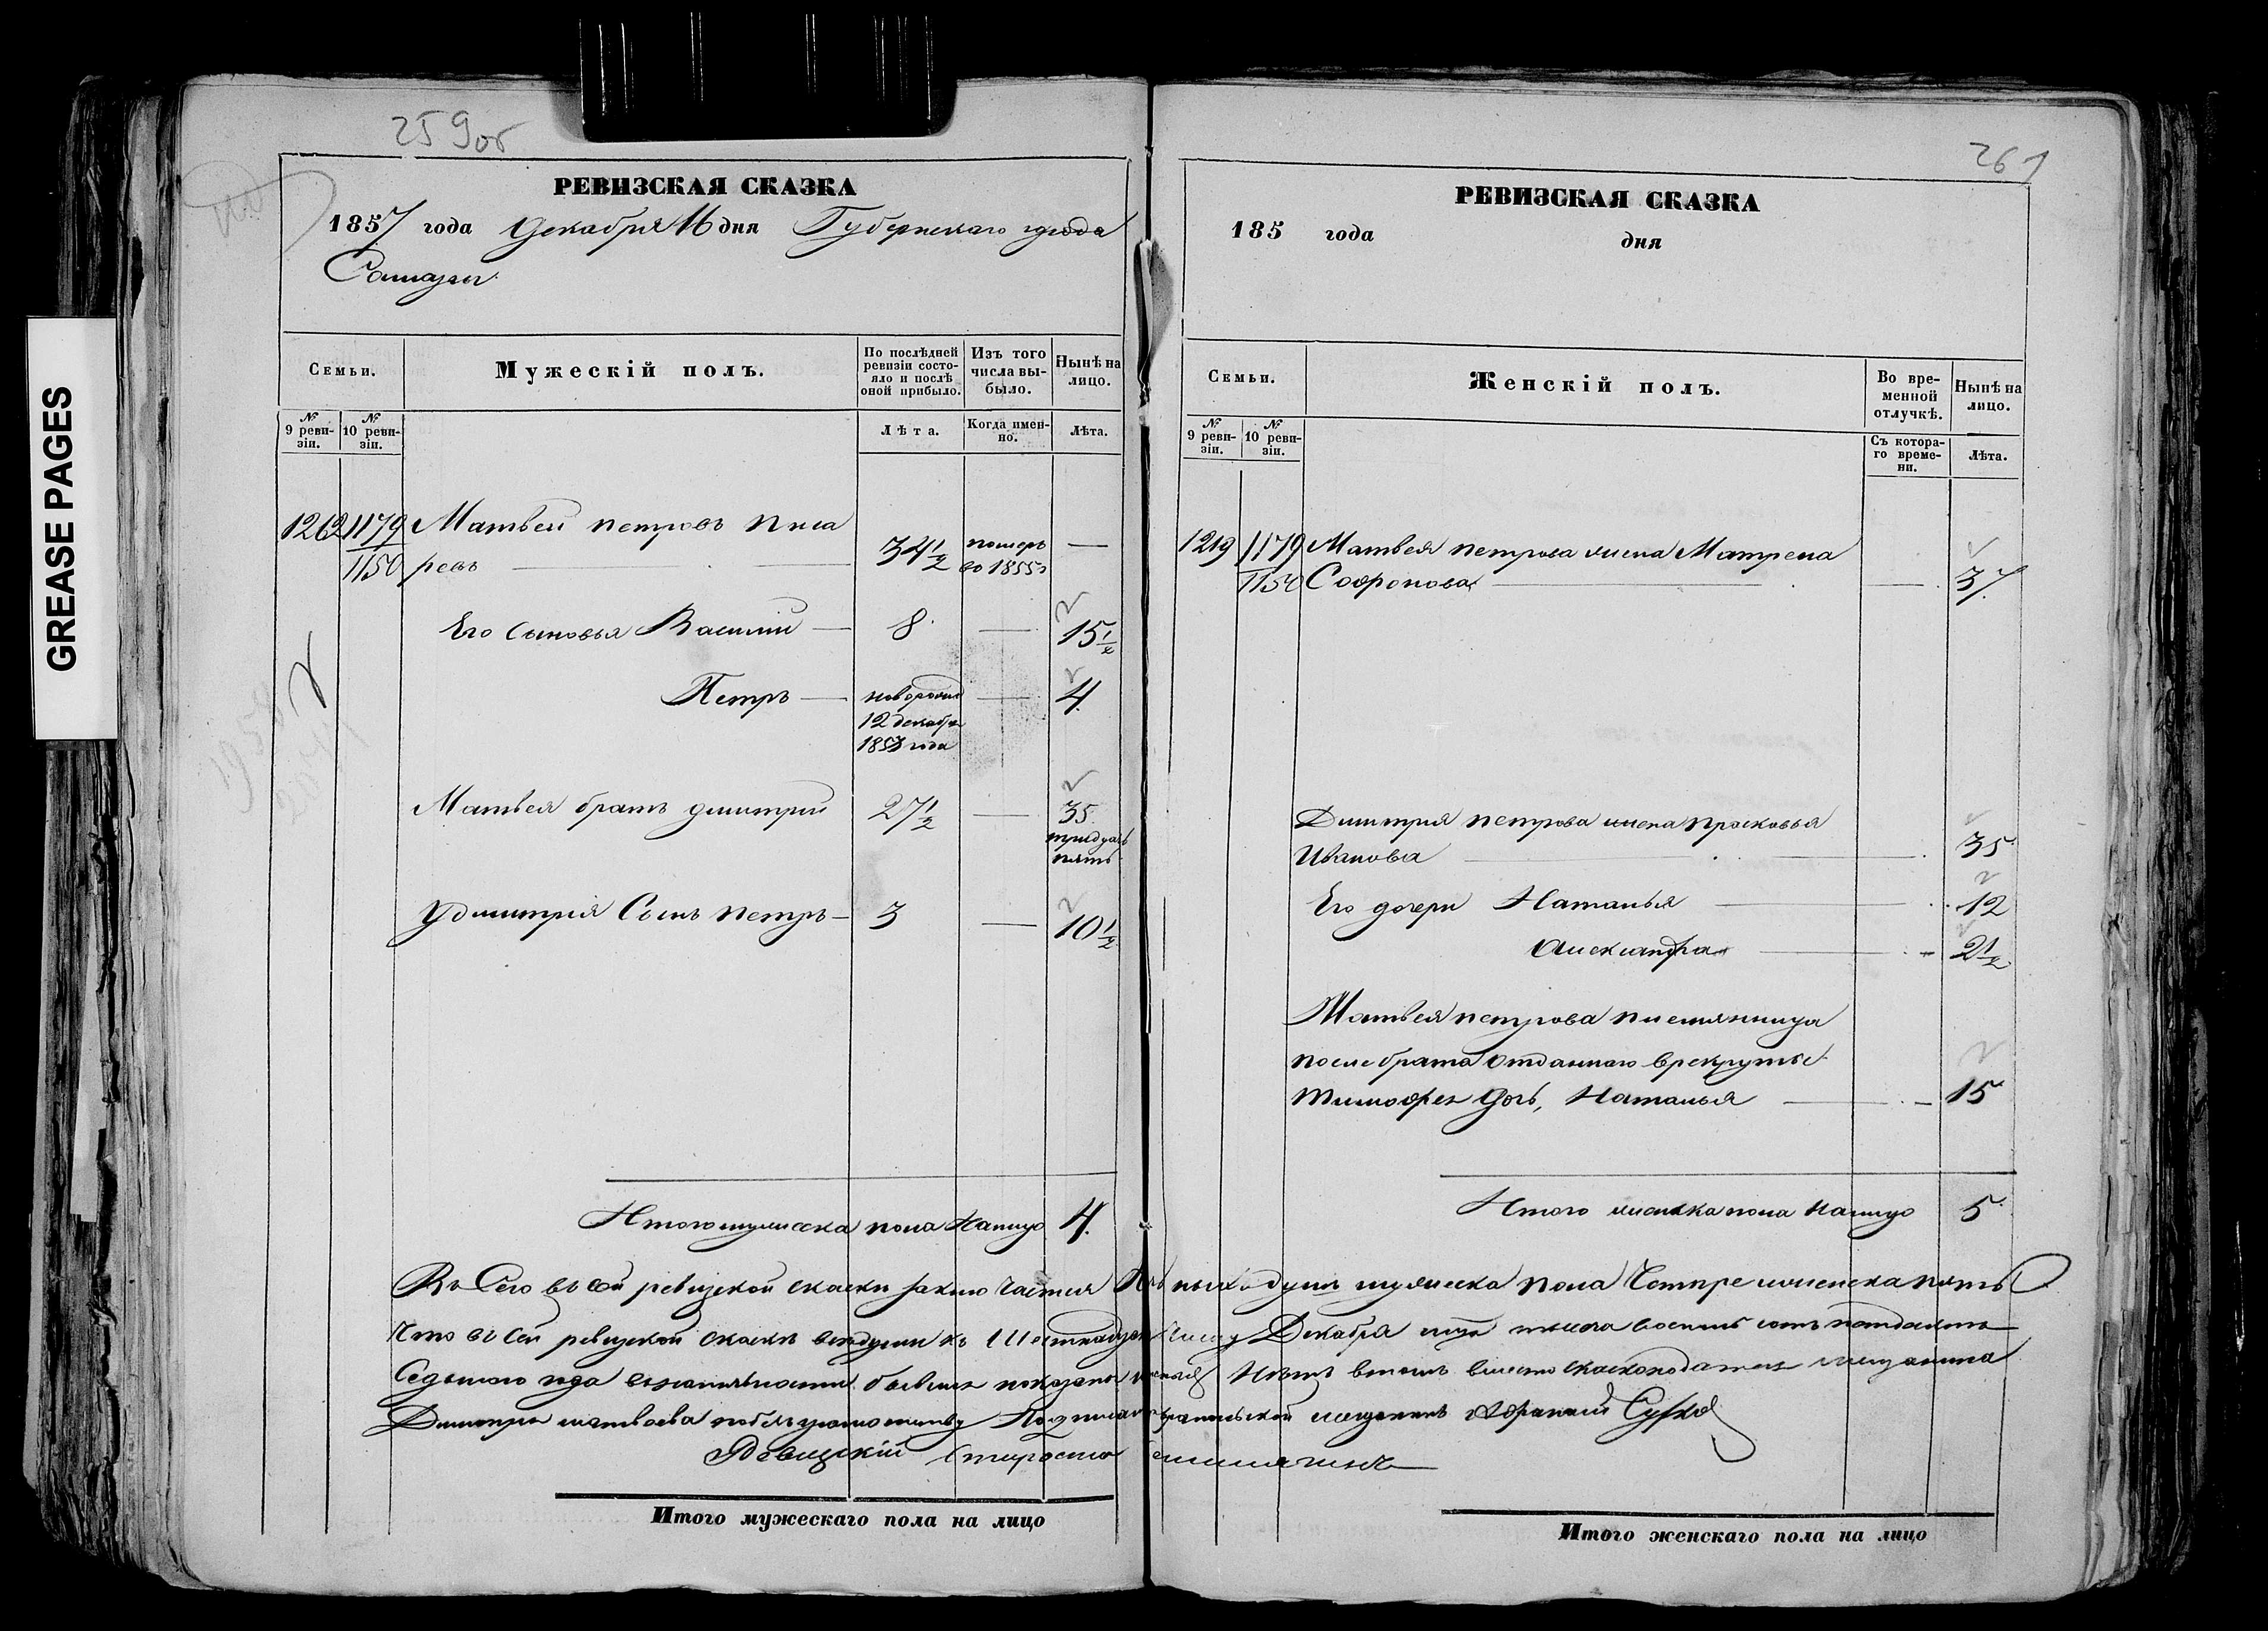 GREASE PAGES
259об
РЕВИЗСКАЯ СКАЗКА
1857 года Декабря 16 дня Губернскаго города
Самары
Семьи.
Мужескій полъ.
По послѣдней ревизіи состояло и послѣ оной прибыло.
Изъ того числа выбыло.
Нынѣ на лицо.
№ 9 ревизіи.
№ 10 ревизіи.
Лѣта.
Когда именно.
Лѣта.
1262 1179 Матвей петровъ писа
1150 ревъ 34 1/2 померъ во 1855 г —
Его сыновья Василий — 8 — 15 1/2
Петръ — новорожд 12 декабря 1853 года — 4
Матвея братъ дмитрий 27 1/2 — 35 тридцать пять
У дмитрия Сынъ петръ — 3 — 10 1/2
Итого мужеска пола Налицо 4.
261
РЕВИЗСКАЯ СКАЗКА
185 года дня
Семьи.
Женскій полъ.
Во временной отлучкѣ.
Нынѣ на лицо.
№ 9 ревизіи.
№ 10 ревизіи.
Съ котораго времени.
Лѣта.
1219 1179 Матвея петрова жена Матрена
1150 Софронова — 37
Дмитрия петрова жена прасковья
Иванова 35
Его дочери Наталья 12
Александра — 2 1/2
Матвея петрова племянница
после брата отданного врекруты
тимофея дочь, Наталья — 15
Итого женска пола налицо 5
Въ Сего въ сей ревизской скаски заключается Наличныхъ душъ мужеска пола Четире женска пять
Что въ Сей ревизской скаске всѣ души къ Шестнадцатому Числу Декабря тысяча восемь сотъ пятдесятъ
Седьмого года
Дмитрия матвеева Сурков
Ревизский Староста
Итого мужескаго пола на лицо
Итого женскаго пола на лицо